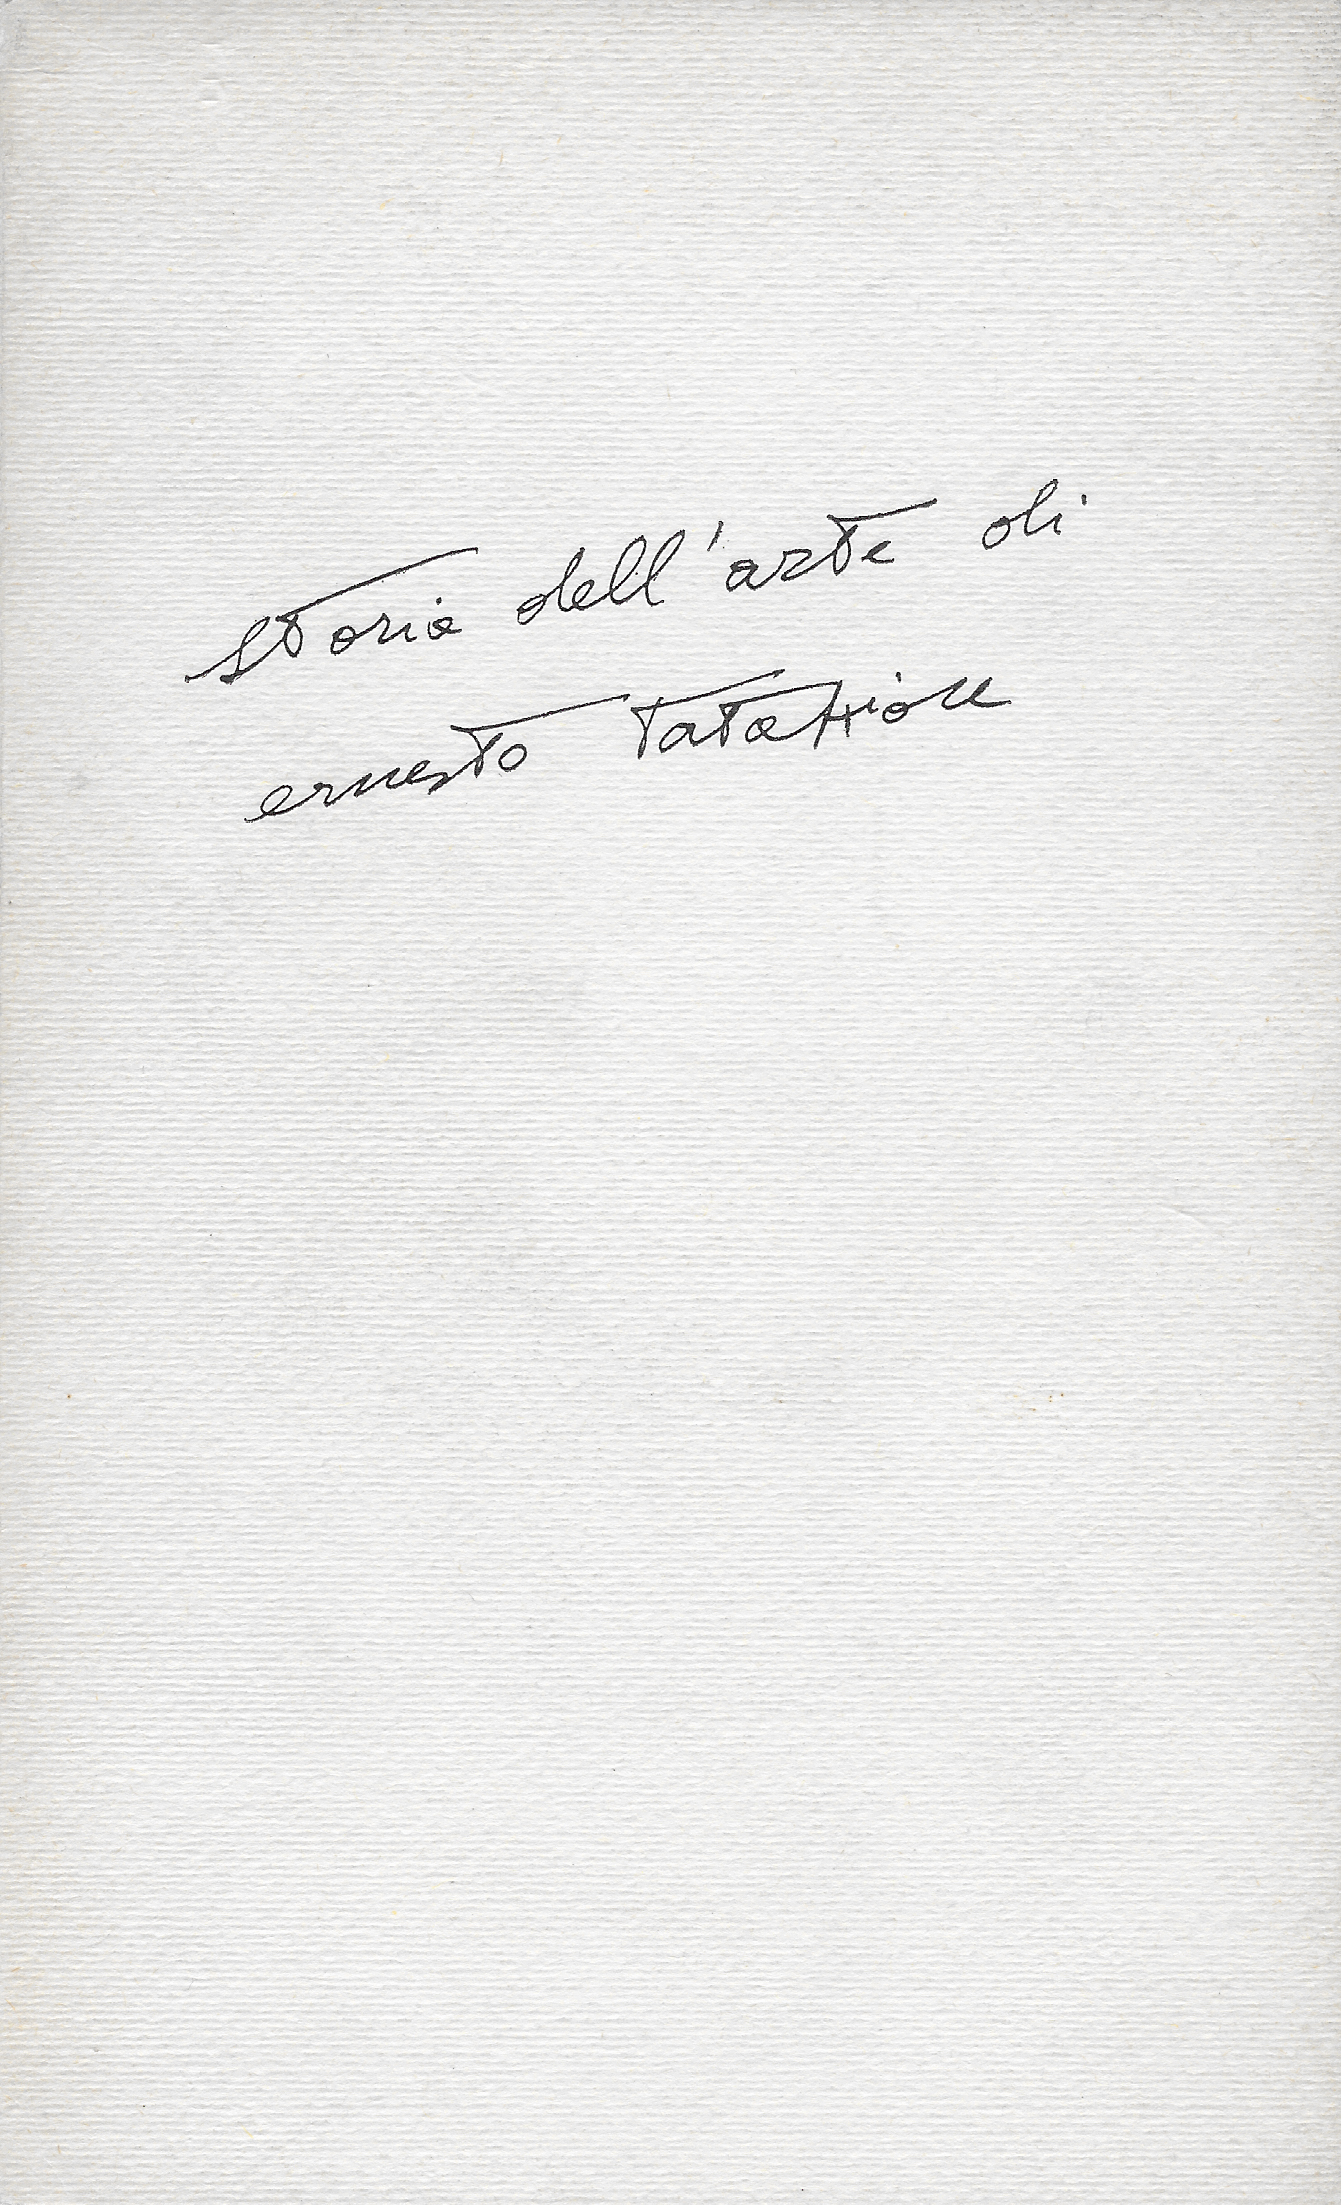 storia dell'arte di
ernesto tatafiore